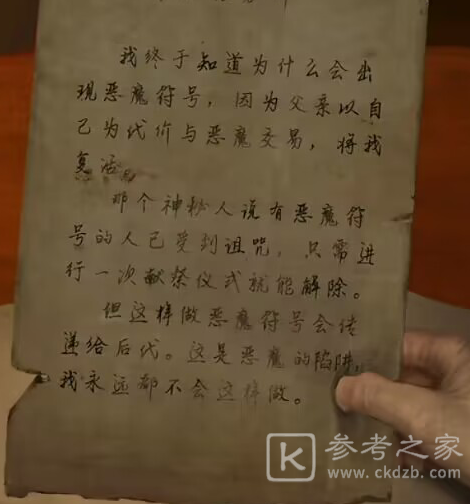 我终于知道为什么会出
现恶魔符号，因为父亲以自
己为代价与恶魔交易，将我
复活。
那个神秘人说有恶魔符
号的人已受到诅咒，只需进
行一次献祭仪式就能解除。
但这样做恶魔符号会传
递给后代。这是恶魔的陷阱，
我永远都不会这样做。
K 参考之家
www.ckdzb.com